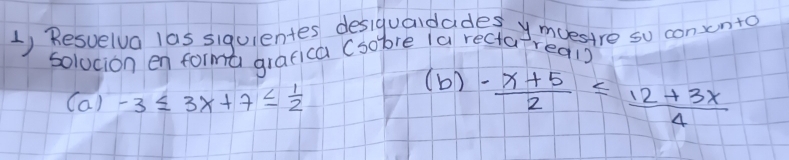 1) Resuelva las siguientes desigualdades y muestre su conjunto
solución en forma grafica (sobre la recta real)
(a) -3 ≤ 3x+7 ≤ 1/2
(b) - x+5/2 ≤ 12+3x/4